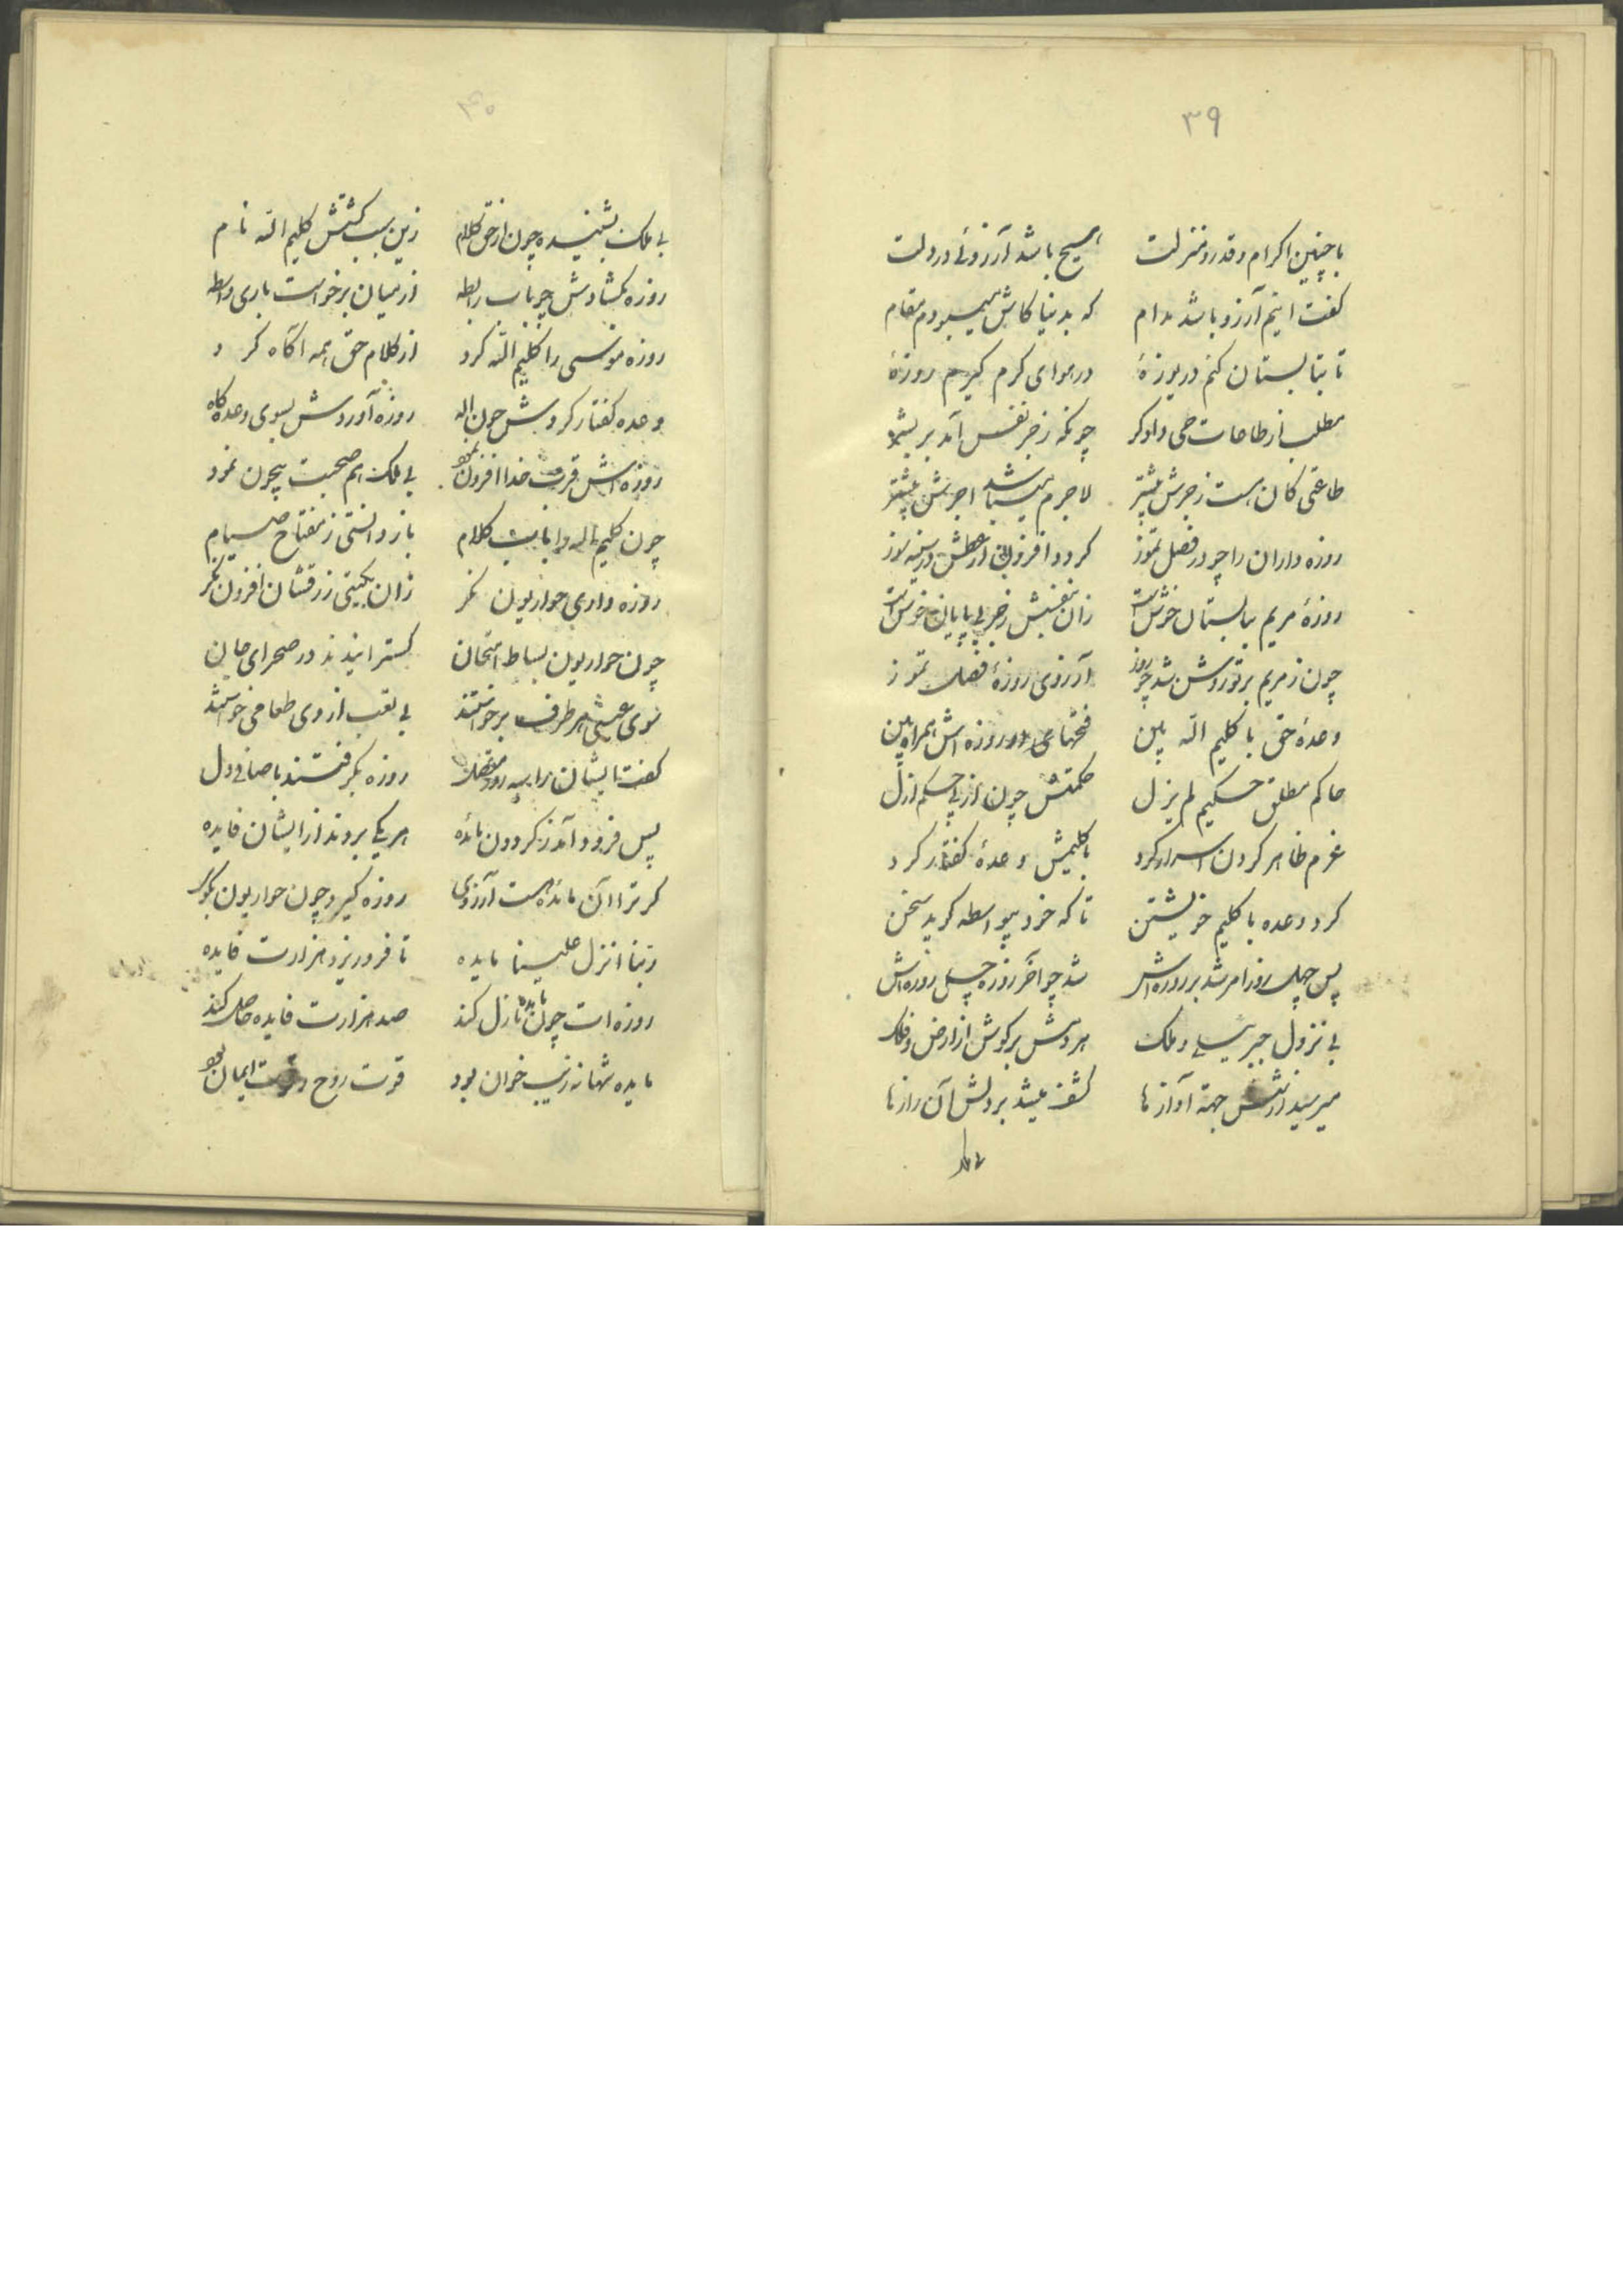 ۳۹
باچنین اکرام و قدر و منزلت هیچ باشد آرزوئی در دلت
کفت اینم آرزو باشد مدام که بدنیا کاش میبودم مقام
تا بتابستان کنم دریوزهٔ در هوای کرم کیرم روزهٔ
مطلب از طاعات حی دادکر چونکه زجر نفس آمد بر بشر
طاعتی کان هست زجرش بیشتر لاجرم میباشد اجرش بیشتر
روزه داران را چو در فصل تموز کردد افزون از عطش در سینه سوز
روزهٔ مریم بتابستان خوش است زان بنفسش زجر بی پایان خوش است
چون ز مریم بر تو روشن شد چو روز آرزوی روزهٔ فصل تموز
وعدهٔ حق با کلیم الله بین فتحهای روزه اش همراه بین
حاکم مطلق حکیم لم یزل حکمتش چون از پی حکم ازل
عزم ظاهر کردن اسرار کرد با کلیمش وعدهٔ کفتار کرد
کرد وعده با کلیم خویشتن تا که خود بیواسطه کوید سخن
پس چهل روز امر شد بر روزه اش شد چو آخر روزه چهل روزه اش
بی نزول جبرئیل و ملک هر دمش بر کوش از ارض و فلک
میرسید از شش جهة آوازها کشف میشد بر دلش آن رازها
بی ملک
۴۰
بی ملک بشنیده چون از حق کلام زین سبب کشتش کلیم الله نام
روزه بکشادش چو باب رابطه از میان برخواست باری واسطه
روزه موسی را کلیم الله کرد از کلام حق همه آکاه کرد
وعده کفتار کردش چون اله روزه آوردش بسوی وعده کاه
روزه اش قرب خدا افزون نمود بی ملک هم صحبت بیچون نمود
چون کلیم اله را باب کلام باز دانستی ز مفتاح صیام
روزه داری حواریون نکر زان بکیتی رزقشان افزون نکر
چون حواریون بساط امتحان کسترانیدند در صحرای جان
سوی عیسی هر طرف برخواستند بی تعب از وی طعامی خواستند
کفت ایشان را سه روز متصل روزه بکرفتند با صافی دل
پس فرود آمد ز کردون مائده هر یکی بردند از ایشان فایده
کر ترا آن مائده هست آرزوی روزه کیر و چون حواریون بکوی
ربنا انزل علینا مایده تا فرو ریزد هزارت فایده
روزه ات چون مایده نازل کند صد هزارت فایده حاصل کند
مایده شهانه زیب خوان بود قوت روح و قوت ایمان بود